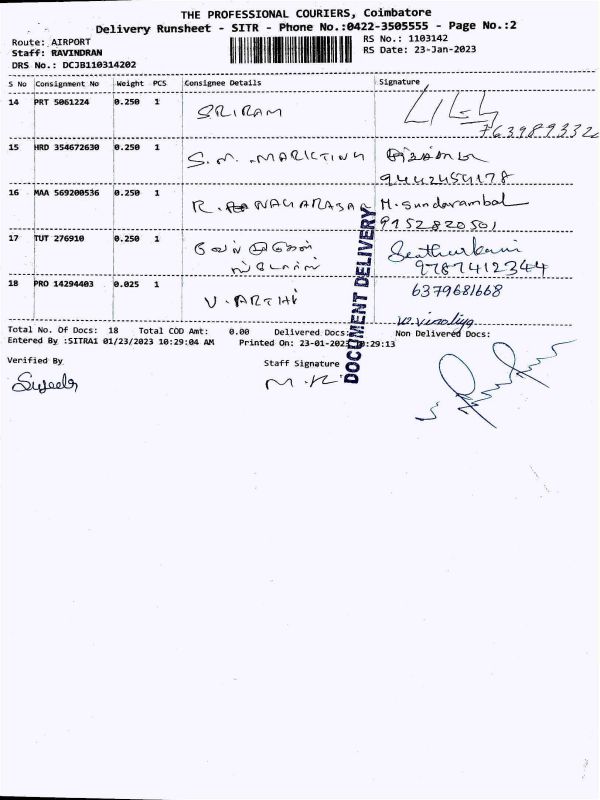 THE PROFESSIONAL COURIERS, Coimbatore
Delivery Runsheet - SITR - Phone No.:0422-3505555 - Page No.:2
Route: AIRPORT RS No.: 1103142
Staff: RAVINDRAN RS Date: 23-Jan-2023
DRS No.: DCJB110314202
S No Consignment No Weight PCS Consignee Details Signature
14 PRT 5061224 0.250 1 SRIRAM
15 HRD 354672630 0.250 1 S.M. MARKETING
9442454178
16 MAA 569200536 0.250 1 R. NAGARASAR M. Sundarambal
9152820501
17 TUT 276910 0.250 1
9787412344
18 PRO 14294403 0.025 1 V. ARTHI 6379681668
DOCUMENT DELIVERY
Total No. Of Docs: 18 Total COD Amt: 0.00 Delivered Docs: Non Delivered Docs:
Entered By :SITRA1 01/23/2023 10:29:04 AM Printed On: 23-01-2023 10:29:13
Verified By Staff Signature